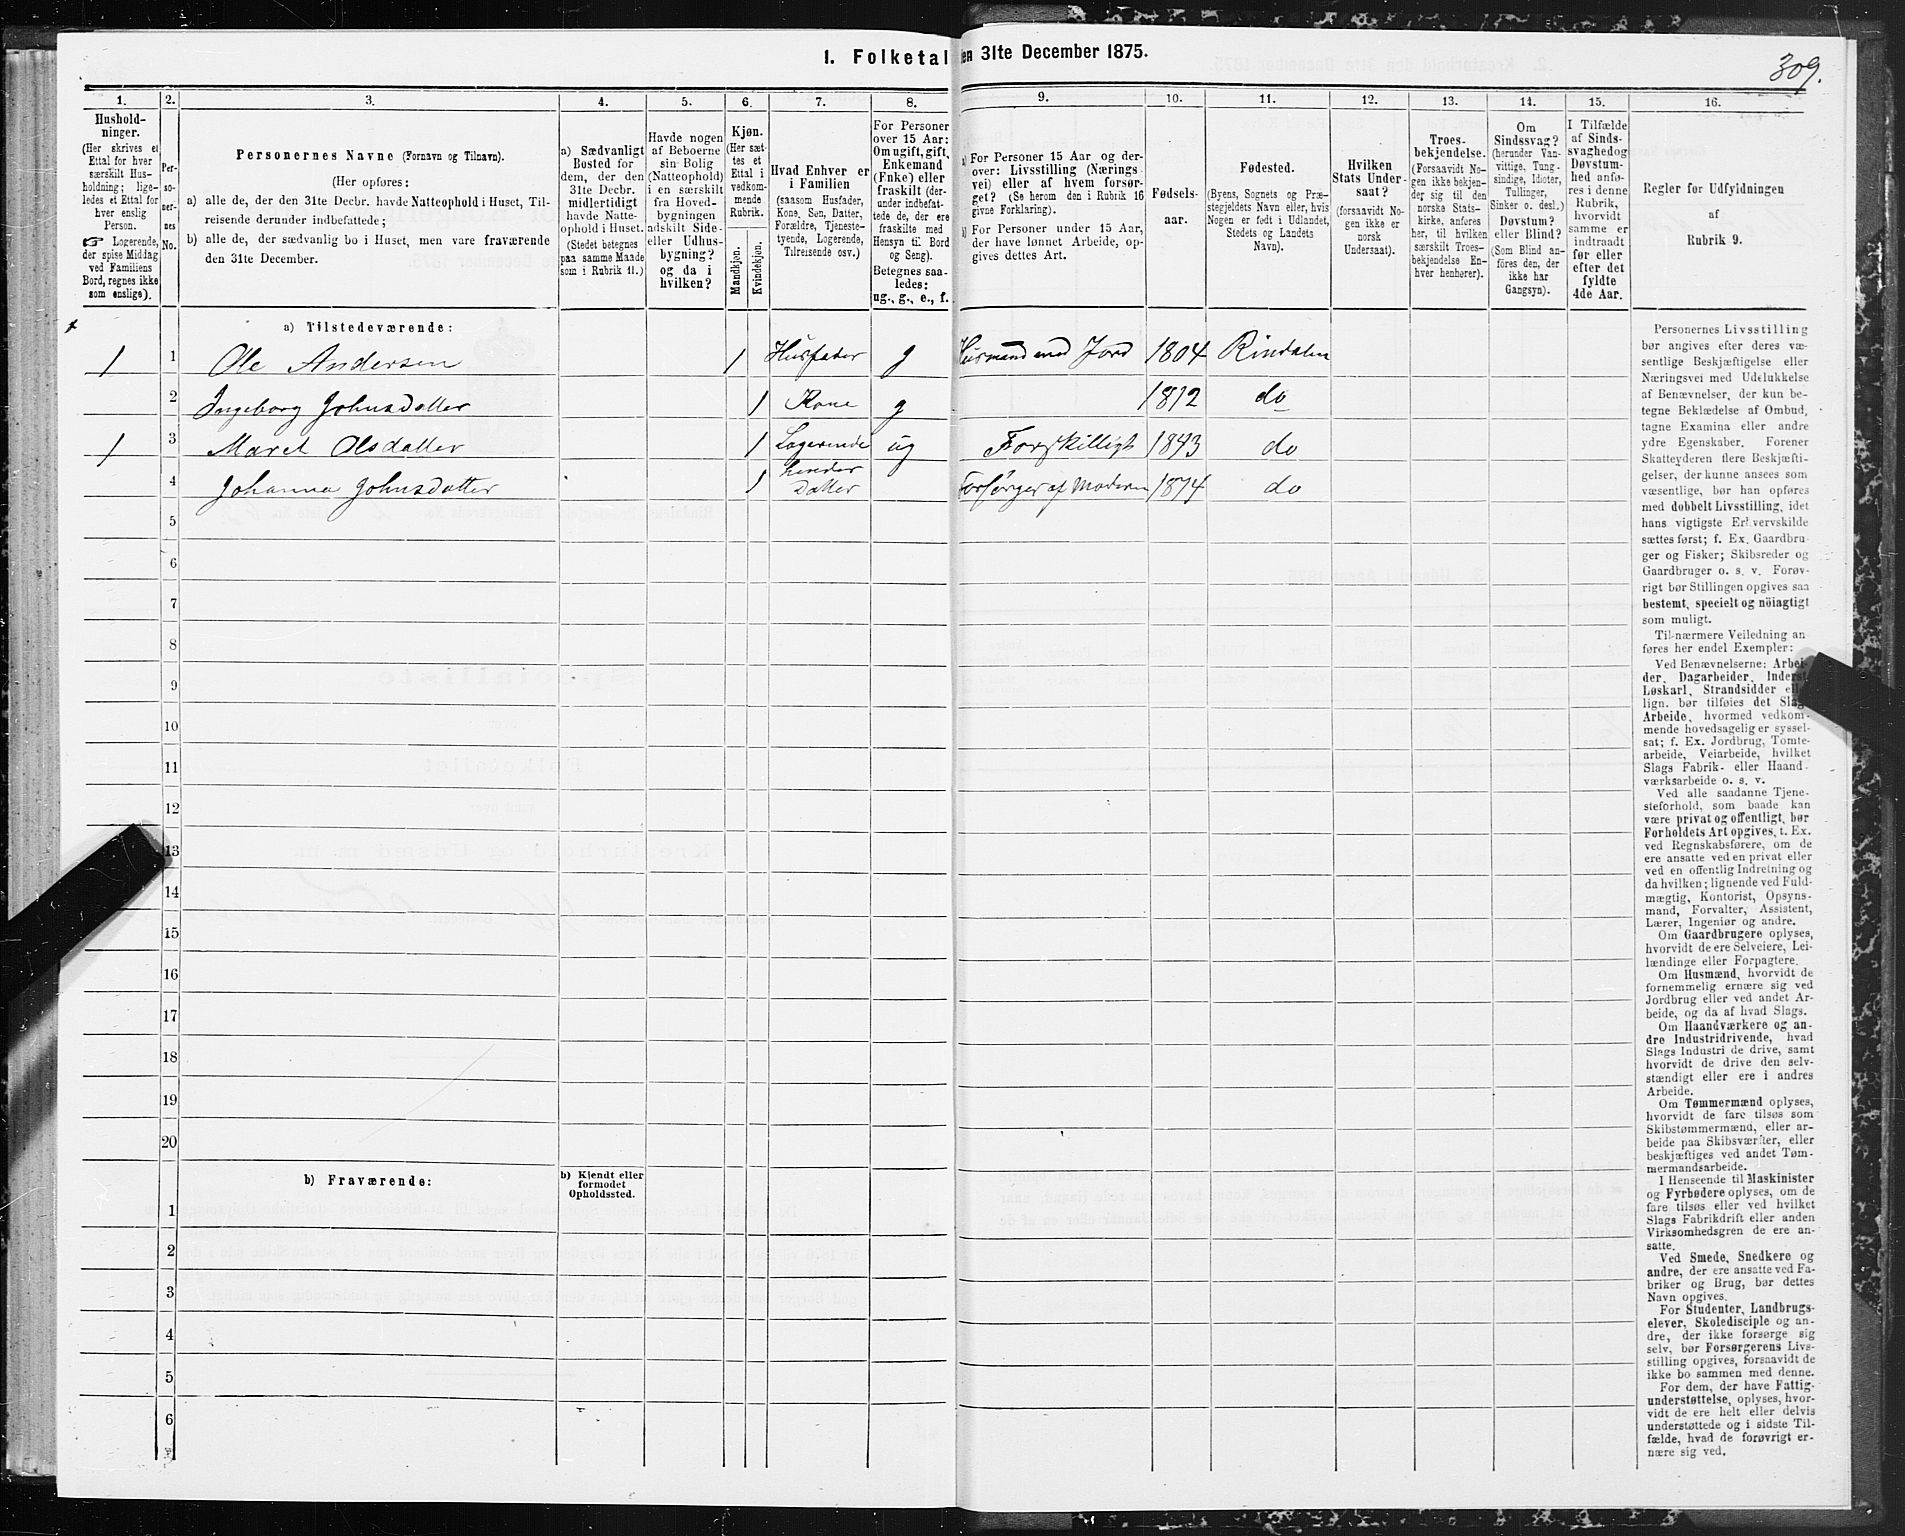 1. Folketal
den 31te December 1875.
309.
1.
2.
3.
4.
5.
6.
7.
8.
9.
10.
11.
12.
13.
14.
15.
16.
Hushold-
ninger.
(Her skrives et
Ettal for hver
særskilt Hus-
holdning; lige-
ledes et Ettal for
hver enslig
Person.
☞ Logerende,
der spise Middag
ved Familiens
Bord, regnes ikke
som enslige).
Per-
so-
ner-
nes
No.
Personernes Navne (Fornavn og Tilnavn).
(Her opføres:
a) alle de, der den 31te Decbr. havde Natteophold i Huset, Til-
reisende derunder indbefattede;
b) alle de, der sædvanlig bo i Huset, men vare fraværende
den 31te December.
a) Sædvanligt
Bosted for
dem, der den
31te Decbr.
midlertidigt
havde Natte-
ophold i Huset.
(Stedet betegnes
paa samme Maade
som i Rubrik 11.)
Havde nogen
af Beboerne
sin Bolig
(Natteophold)
i en særskilt
fra Hoved-
bygningen
adskilt Side-
eller Udhus-
bygning?
og da i
hvilken?
Kjøn.
(Her sæt-
tes et
Ettal i
vedkom-
mende
Rubrik.
Mandkjøn.
Kvindekjøn.
Hvad Enhver er
i Familien
(saasom Husfader,
Kone, Søn, Datter,
Forældre, Tjeneste-
tyende, Logerende,
Tilreisende osv.)
For Personer
over 15 Aar:
Om ugift, gift,
Enkemand
(Enke) eller
fraskilt (der-
under indbefat-
tede de, der ere
fraskilte med
Hensyn til Bord
og Seng).
Betegnes saa-
ledes:
ug., g., e., f.
a) For Personer 15 Aar og der-
over: Livsstilling (Nærings-
vei) eller af hvem forsør-
get? (Se herom den i Rubrik 16
givne Forklaring).
b) For Personer under 15 Aar,
der have lønnet Arbeide, op-
gives dettes Art.
Fødsels-
aar.
Fødested.
(Byens, Sognets og Præ-
stegjeldets Navn eller, hvis
Nogen er født i Udlandet,
Stedets og Landets
Navn).
Hvilken
Stats Under-
saat?
(forsaavidt No-
gen ikke er
norsk
Undersaat).
Troes-
bekjendelse.
(Forsaavidt No-
gen ikke bekjen-
der sig til den
norske Stats-
kirke, anføres
her, til hvilken
særskilt Troes-
bekjendelse En-
hver henhører).
Om
Sindssvag?
(herunder Van-
vittige, Tung-
sindige, Idioter,
Tullinger,
Sinker o. desl.)
Døvstum?
eller Blind?
(Som Blind an-
føres den, der
ikke har
Gangsyn).
I Tilfælde
af Sinds-
svaghed og
Døvstum-
hed anfø-
res i denne
Rubrik,
hvorvidt
samme er
indtraadt
før eller
efter det
fyldte
4de Aar.
Regler for Udfyldningen
af
Rubrik 9.
a) Tilstedeværende:
1 1 Ole Andersen 1 Husfader g Husmand med Jord 1804 Rindalen
2 Ingeborg Johnsdatter 1 Kone g 1812 do
1 3 Maret Olsdatter 1 Logerende ug Forskilligt 1843 do
4 Johanna Johnsdatter 1 hendes Datter Forsørges af Moderen 1874 do
5
6
7
8
9
10
11
12
13
14
15
16
17
18
19
20
b) Fraværende:
b) Kjendt eller
formodet
Opholdssted.
1
2
3
4
5
6
Personernes Livsstilling
bør angives efter deres væ-
sentlige Beskjæftigelse eller
Næringsvei med Udelukkelse
af Benævnelser, der kun be-
tegne Beklædelse af Ombud,
tagne Examina eller andre
ydre Egenskaber. Forener
Skatteyderen flere Beskjæfti-
gelser, der kunne ansees som
væsentlige, bør han opføres
med dobbelt Livsstilling, idet
hans vigtigste Erhvervskilde
sættes først; f. Ex. Gaardbru-
ger og Fisker; Skibsreder og
Gaardbruger o. s. v. Forøv-
rigt bør Stillingen opgives saa
bestemt, specielt og nöiagtigt
som muligt.
Til nærmere Veiledning an-
føres her endel Exempler:
Ved Benævnelserne: Arbei-
der, Dagarbeider, Inderst,
Løskarl, Strandsidder eller
lign. bør tilføies det Slags
Arbeide, hvormed vedkom-
mende hovedsagelig er syssel-
sat; f. Ex. Jordbrug, Tomte-
arbeide, Veiarbeide, hvilket
Slags Fabrik- eller Haand-
værksarbeide o. s. v.
Ved alle saadanne Tjene-
steforhold, som baade kan
være privat og offentligt, bør
Forholdets Art opgives, t. Ex.
ved Regnskabsførere, om de
ere ansatte ved en privat eller
ved en offentlig Indretning og
da hvilken; lignende ved Fuld-
mægtig, Kontorist, Opsyns-
mand, Forvalter, Assistent,
Lærer, Ingeniør og andre.
Om Gaardbrugere oplyses,
hvorvidt de ere Selveiere, Lei-
lændinge eller Forpagtere.
Om Husmænd, hvorvidt de
fornemmelig ernære sig ved
Jordbrug eller ved andet Ar-
beide, og da af hvad Slags.
Om Haandværkere og an-
dre Industridrivende, hvad
Slags Industri de drive, samt
hvorvidt de drive den selv-
stændigt eller ere i andres
Arbeide.
Om Tømmermænd oplyses,
hvorvidt de fare tilsøs som
Skibstømmermænd, eller ar-
beide paa Skibsværfter, eller
beskjæftiges ved andet Tøm-
mermandsarbeide.
I Henseende til Maskinister
og Fyrbødere oplyses, om de
fare tilsøs eller ved hvilket
Slags Fabrikdrift eller anden
Virksomhedsgren de ere an-
satte.
Ved Smede, Snedkere og
andre, der ere ansatte ved Fa-
briker og Brug, bør dettes
Navn opgives.
For Studenter, Landbrugs-
elever, Skoledisciple og an-
dre, der ikke forsørge sig
selv, bør Forsørgerens Livs-
stilling opgives, forsaavidt de
ikke bo sammen med denne.
For dem, der have Fattig-
understøttelse, oplyses, hvor-
vidt de ere helt eller delvis
understøttede og i sidste Til-
fælde, hvad de forøvrigt er-
nære sig ved.